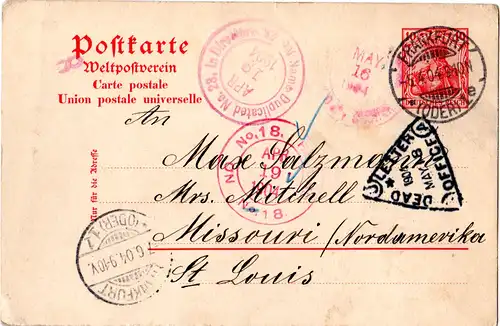 Postkarte
Weltpostverein
Carte postale
Union postale universelle
Nur für die Adresse
No. 23, in Directory, Name Duplicated
APR
19
1904
MAY
16
1904
FRANKFURT
(ODER)
e
No. 18.
APR
19
04
No. 18
DEAD LETTER OFFICE
MAY
1904
An
Max Salzmann
Mrs. Mitchell
Missouri (Nordamerika
St Louis
FRANKFURT
(ODER) 1
6.04.9-10V.